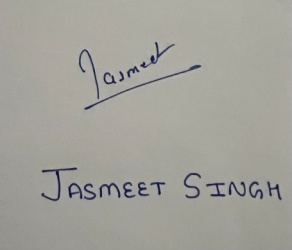 Jasmeet
JASMEET SINGH